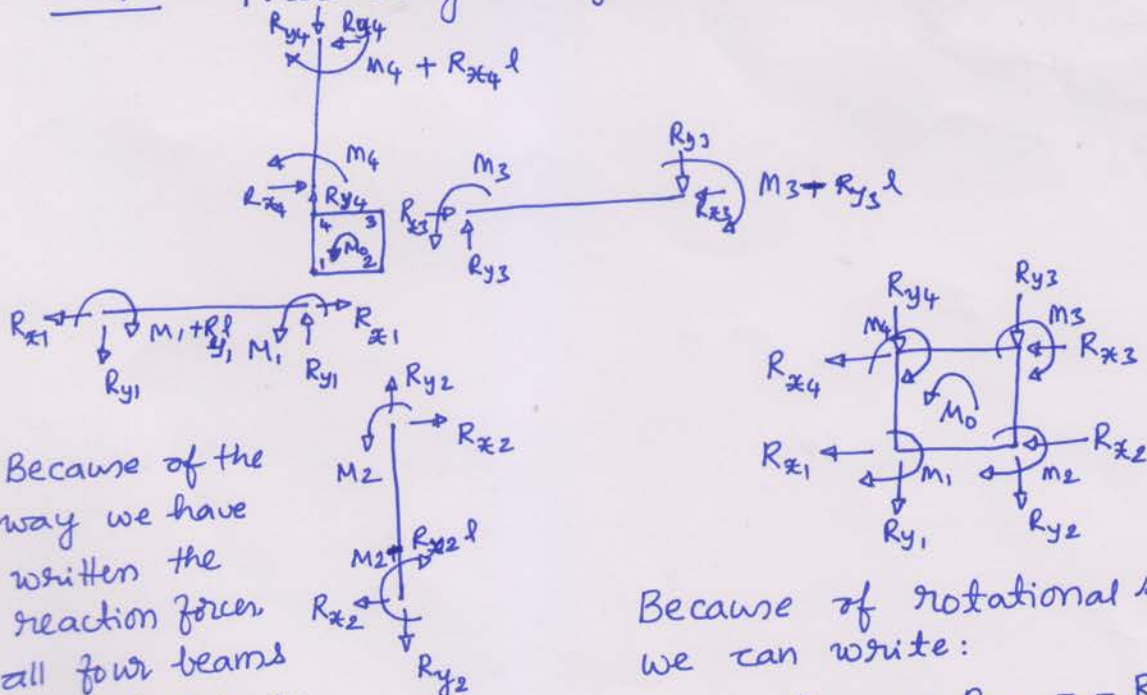 Ry4 Rx4
M4 + Rx4 l
M4
Rx4 Ry4
4 3
1 M0 2
M3
Rx3
Ry3
Ry3
Rx3
M3 + Ry3 l
Rx1
M1 + Ry1 l
M1
Rx1
Ry1
Ry1
Ry2
Rx2
M2
M2 + Rx2 l
Rx2
Ry2
Ry4
Ry3
M4
M3
Rx4
Rx3
M0
Rx1
Rx2
M1
M2
Ry1
Ry2
Because of the
way we have
written the
reaction forces
all four beams
Because of rotational
we can write: